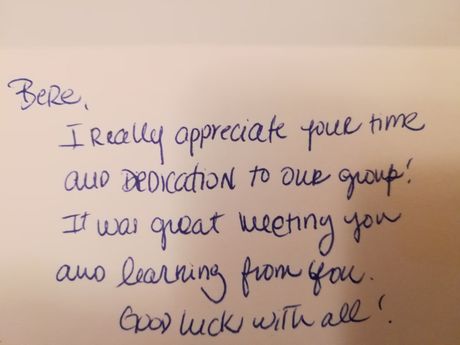 Bere,
I really appreciate your time
and DEDICATION to our group!
It was great meeting you
and learning from you.
Good luck with all!